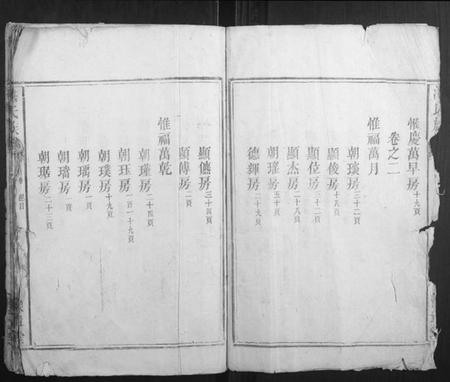 惟慶萬早房十九頁
卷之二
惟福萬月
朝琰房三十二頁
顯俊房十八頁
顯位房二十二頁
顯杰房二十八頁
朝瑾房五十頁
德鉀房二十九頁
顯僬房三十四頁
顯傅房二頁
惟福萬乾
朝瑾房二十四頁
朝玨房一百一十九頁
朝璞房十九頁
朝瑀房一頁
朝璿房頁
朝琚房二十三頁
氏族
總目